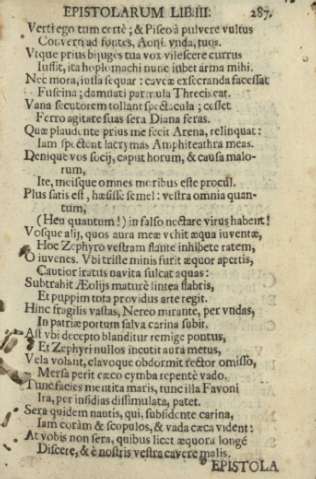 EPISTOLARUM LIB. III. 287.
Verti ego tum certè; & Piseo à pulvere vultus
Converti ad fontes, Aoni, vnda, tuos.
Vtque prius bijuges tua vox vilescere currus
Iussit, ita hoplomachi nunc iubet arma mihi.
Nec mora, iussa sequar: caveæ execranda facessat
Fuscina; damnati parmula Threcis eat.
Vana secutorem tollant spectacula; cesset
Ferro agitare suas sera Diana feras.
Quæ plaudente prius me fecit Arena, relinquat:
Iam spectent lacrymas Amphiteathra meas.
Denique vos socij, caput horum, & causa malo-
rum,
Ite, meisque omnes moribus este procul.
Plus satis est, hæsisse semel: vestra omnia quan-
tum,
(Heu quantum!) in falso nectare virus habent!
Vosque alij, quos aura meæ vehit æqua iuventæ,
Hoc Zephyro vestram flante inhibete ratem,
O iuvenes. Vbi triste minis furit æquor apertis,
Cautior iratus navita sulcat aquas:
Subtrahit Æolijs maturè lintea flabris,
Et puppim tota providus arte regit.
Hinc fragilis vastas, Nereo mirante, per vndas,
In patriæ portum salva carina subit.
Ast vbi decepto blanditur remige pontus,
Et Zephyri nullos incutit aura metus,
Vela volant, clavoque obdormit rector omisso,
Mersa perit cæco cymba repentè vado.
Tunc facies mentita maris, tunc illa Favoni
Ira, per insidias dissimulata, patet.
Sera quidem nautis, qui, subsidente carina,
Iam coràm & scopulos, & vada cæca vident:
At vobis non sera, quibus licet æquora longè
Discere, & è nostris vestra cavere malis.
EPISTOLA